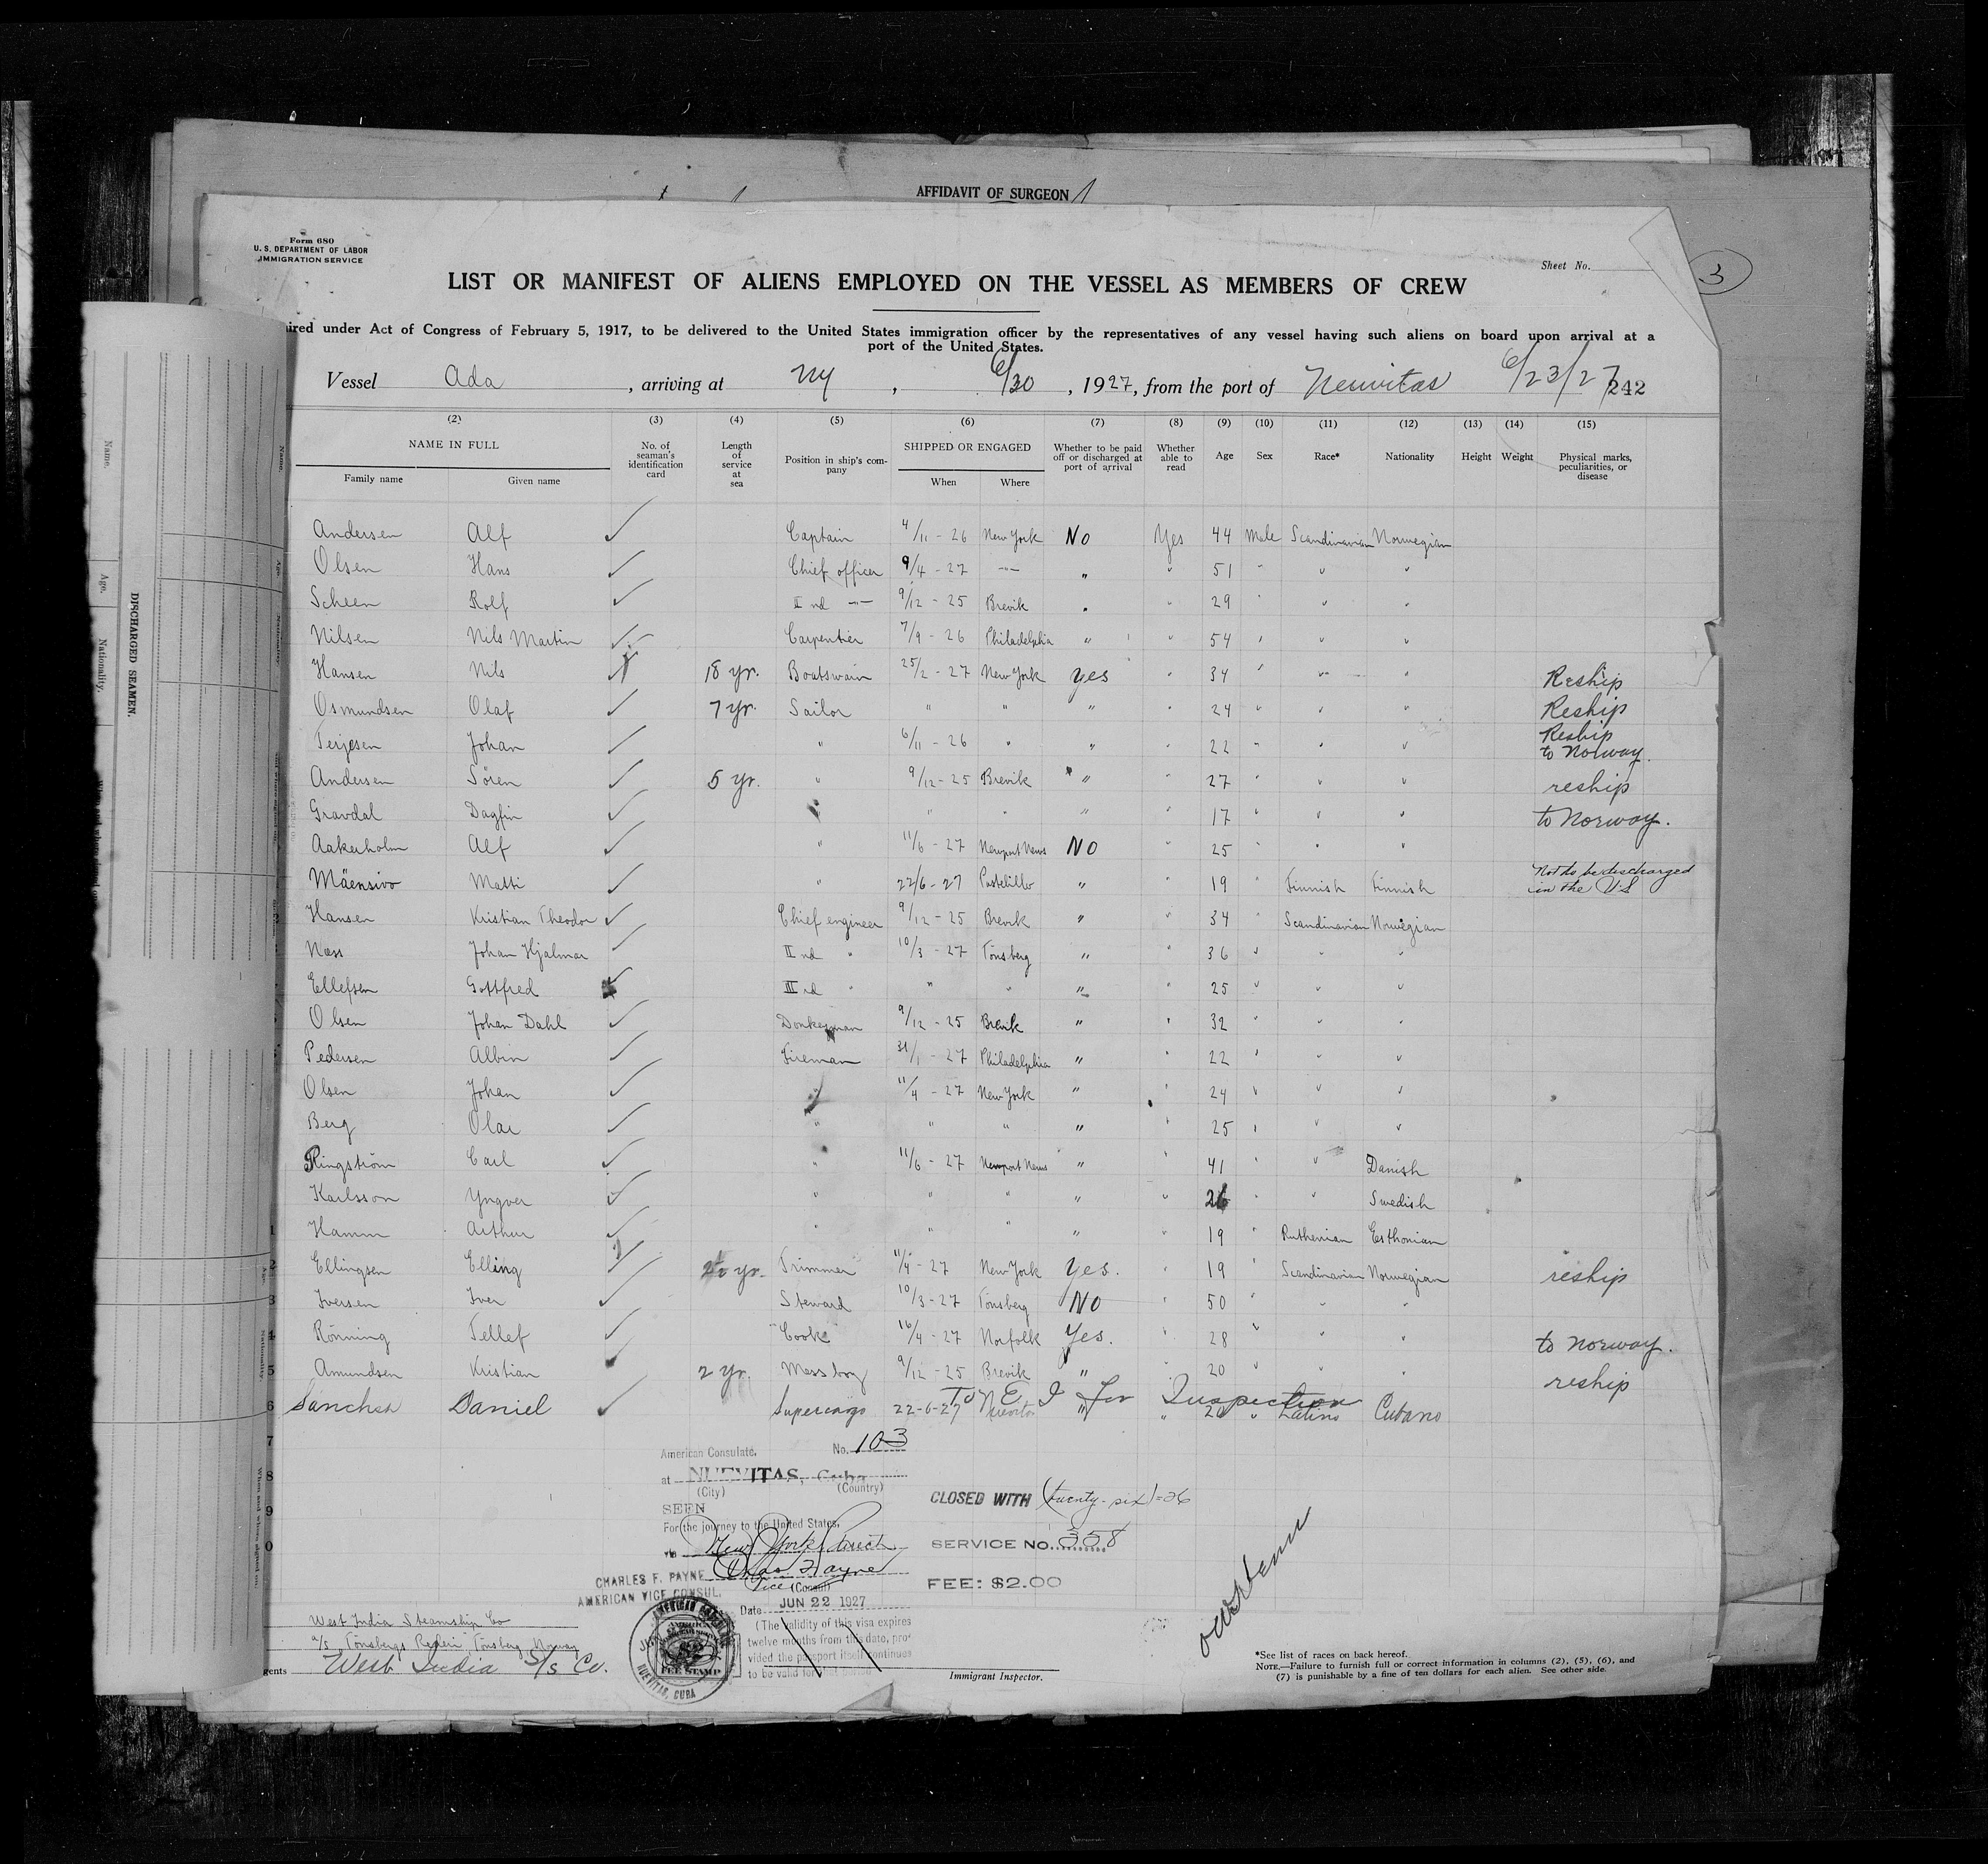 AFFIDAVIT OF SURGEON
3
Form 680
U. S. DEPARTMENT OF LABOR
IMMIGRATION SERVICE
Sheet No.
LIST OR MANIFEST OF ALIENS EMPLOYED ON THE VESSEL AS MEMBERS OF CREW
ired under Act of Congress of February 5, 1917, to be delivered to the United States immigration officer by the representatives of any vessel having such aliens on board upon arrival at a
port of the United States.
Vessel Ada, arriving at NY, 6/30, 1927, from the port of Neuvitas 6/23/27 242
(2) (3) (4) (5) (6) (7) (8) (9) (10) (11) (12) (13) (14) (15)
NAME IN FULL No. of seaman's identification card Length of service at sea Position in ship's company SHIPPED OR ENGAGED Whether to be paid off or discharged at port of arrival Whether able to read Age Sex Race* Nationality Height Weight Physical marks, peculiarities, or disease
Family name Given name When Where
Andersen Alf ✓ Captain 4/11 - 26 New York No Yes 44 Male Scandinavian Norwegian
Olsen Hans ✓ Chief officer 9/4 - 27 —"— " " 51 " " "
Scheen Rolf ✓ II nd —"— 9/12 - 25 Brevik " " 29 " " "
Nilsen Nils Martin ✓ Carpentier 7/9 - 26 Philadelphia " " 54 " " "
Hansen Nils ✓ 18 yr. Boatswain 25/2 - 27 New York yes " 34 " " " Reship
Osmundsen Olaf ✓ 7 yr. Sailor " " " " 24 " " " Reship
Terjesen Johan ✓ " 6/11 - 26 " " " 22 " " " Reship to Norway.
Andersen Sören ✓ 5 yr. " 9/12 - 25 Brevik " " 27 " " " reship
Gravdal Dagfin ✓ " " " " " 17 " " " to Norway.
Aakerholm Alf ✓ " 11/6 - 27 Newport News NO " 25 " " "
Mäensivo Matti ✓ " 22/6 - 27 Pastelillo " " 19 " Finnish Finnish Not to be discharged in the U.S
Hansen Kristian Theodor ✓ Chief engineer 9/12 - 25 Brevik " " 34 " Scandinavian Norwegian
Næss Johan Hjalmar ✓ II nd " 10/3 - 27 Tönsberg " " 36 " " "
Ellefsen Gottfred ✓ III rd " " " " " 25 " " "
Olsen Johan Dahl ✓ Donkeyman 9/12 - 25 Brevik " " 32 " " "
Pedersen Albin ✓ Fireman 31/1 - 27 Philadelphia " " 22 " " "
Olsen Johan ✓ " 11/4 - 27 New York " " 24 " " "
Berg Olai ✓ " " " " " 25 " " "
Ringström Carl ✓ " 11/6 - 27 Newport News " " 41 " " Danish
Karlsson Yngver ✓ " " " " " 26 " " Swedish
1 Hamm Arthur ✓ " " " " " 19 " Ruthenian Esthonian
2 Ellingsen Elling ✓ yr. Trimmer 11/4 - 27 New York Yes. " 19 " Scandinavian Norwegian reship
3 Iversen Iver ✓ Steward 10/3 - 27 Tönsberg NO " 50 " " "
4 Rönning Tellef ✓ Cook 16/4 - 27 Norfolk Yes. " 28 " " " to Norway.
5 Amundsen Kristian ✓ 2 yr. Mess boy 9/12 - 25 Brevik " " 20 " " " reship
To E I for Inspection
6 Daniel ✓ Supercargo 22-6-27 " " " Latino Cubano
7
8
9
0
American Consulate. No. 103
at NUEVITAS, Cuba
(City) (Country)
SEEN
For the journey to the United States.
via New York direct
Chas. F. Payne
CHARLES F. PAYNE
AMERICAN VICE CONSUL.
Vice (Consul)
Date JUN 22 1927
(The validity of this visa expires
twelve months from this date, pro-
vided the passport itself continues
to be valid for
CLOSED WITH (twenty-six) = 26
SERVICE NO. 358
FEE: $2.00
FEE STAMP
NUEVITAS, CUBA
West India Steamship Co
a/s Tönsbergs Rederi Tönsberg Norway
gents West India S/S Co.
Immigrant Inspector.
*See list of races on back hereof.
NOTE.—Failure to furnish full or correct information in columns (2), (5), (6), and
(7) is punishable by a fine of ten dollars for each alien. See other side.
DISCHARGED SEAMEN.
Name.
Age.
Nationality.